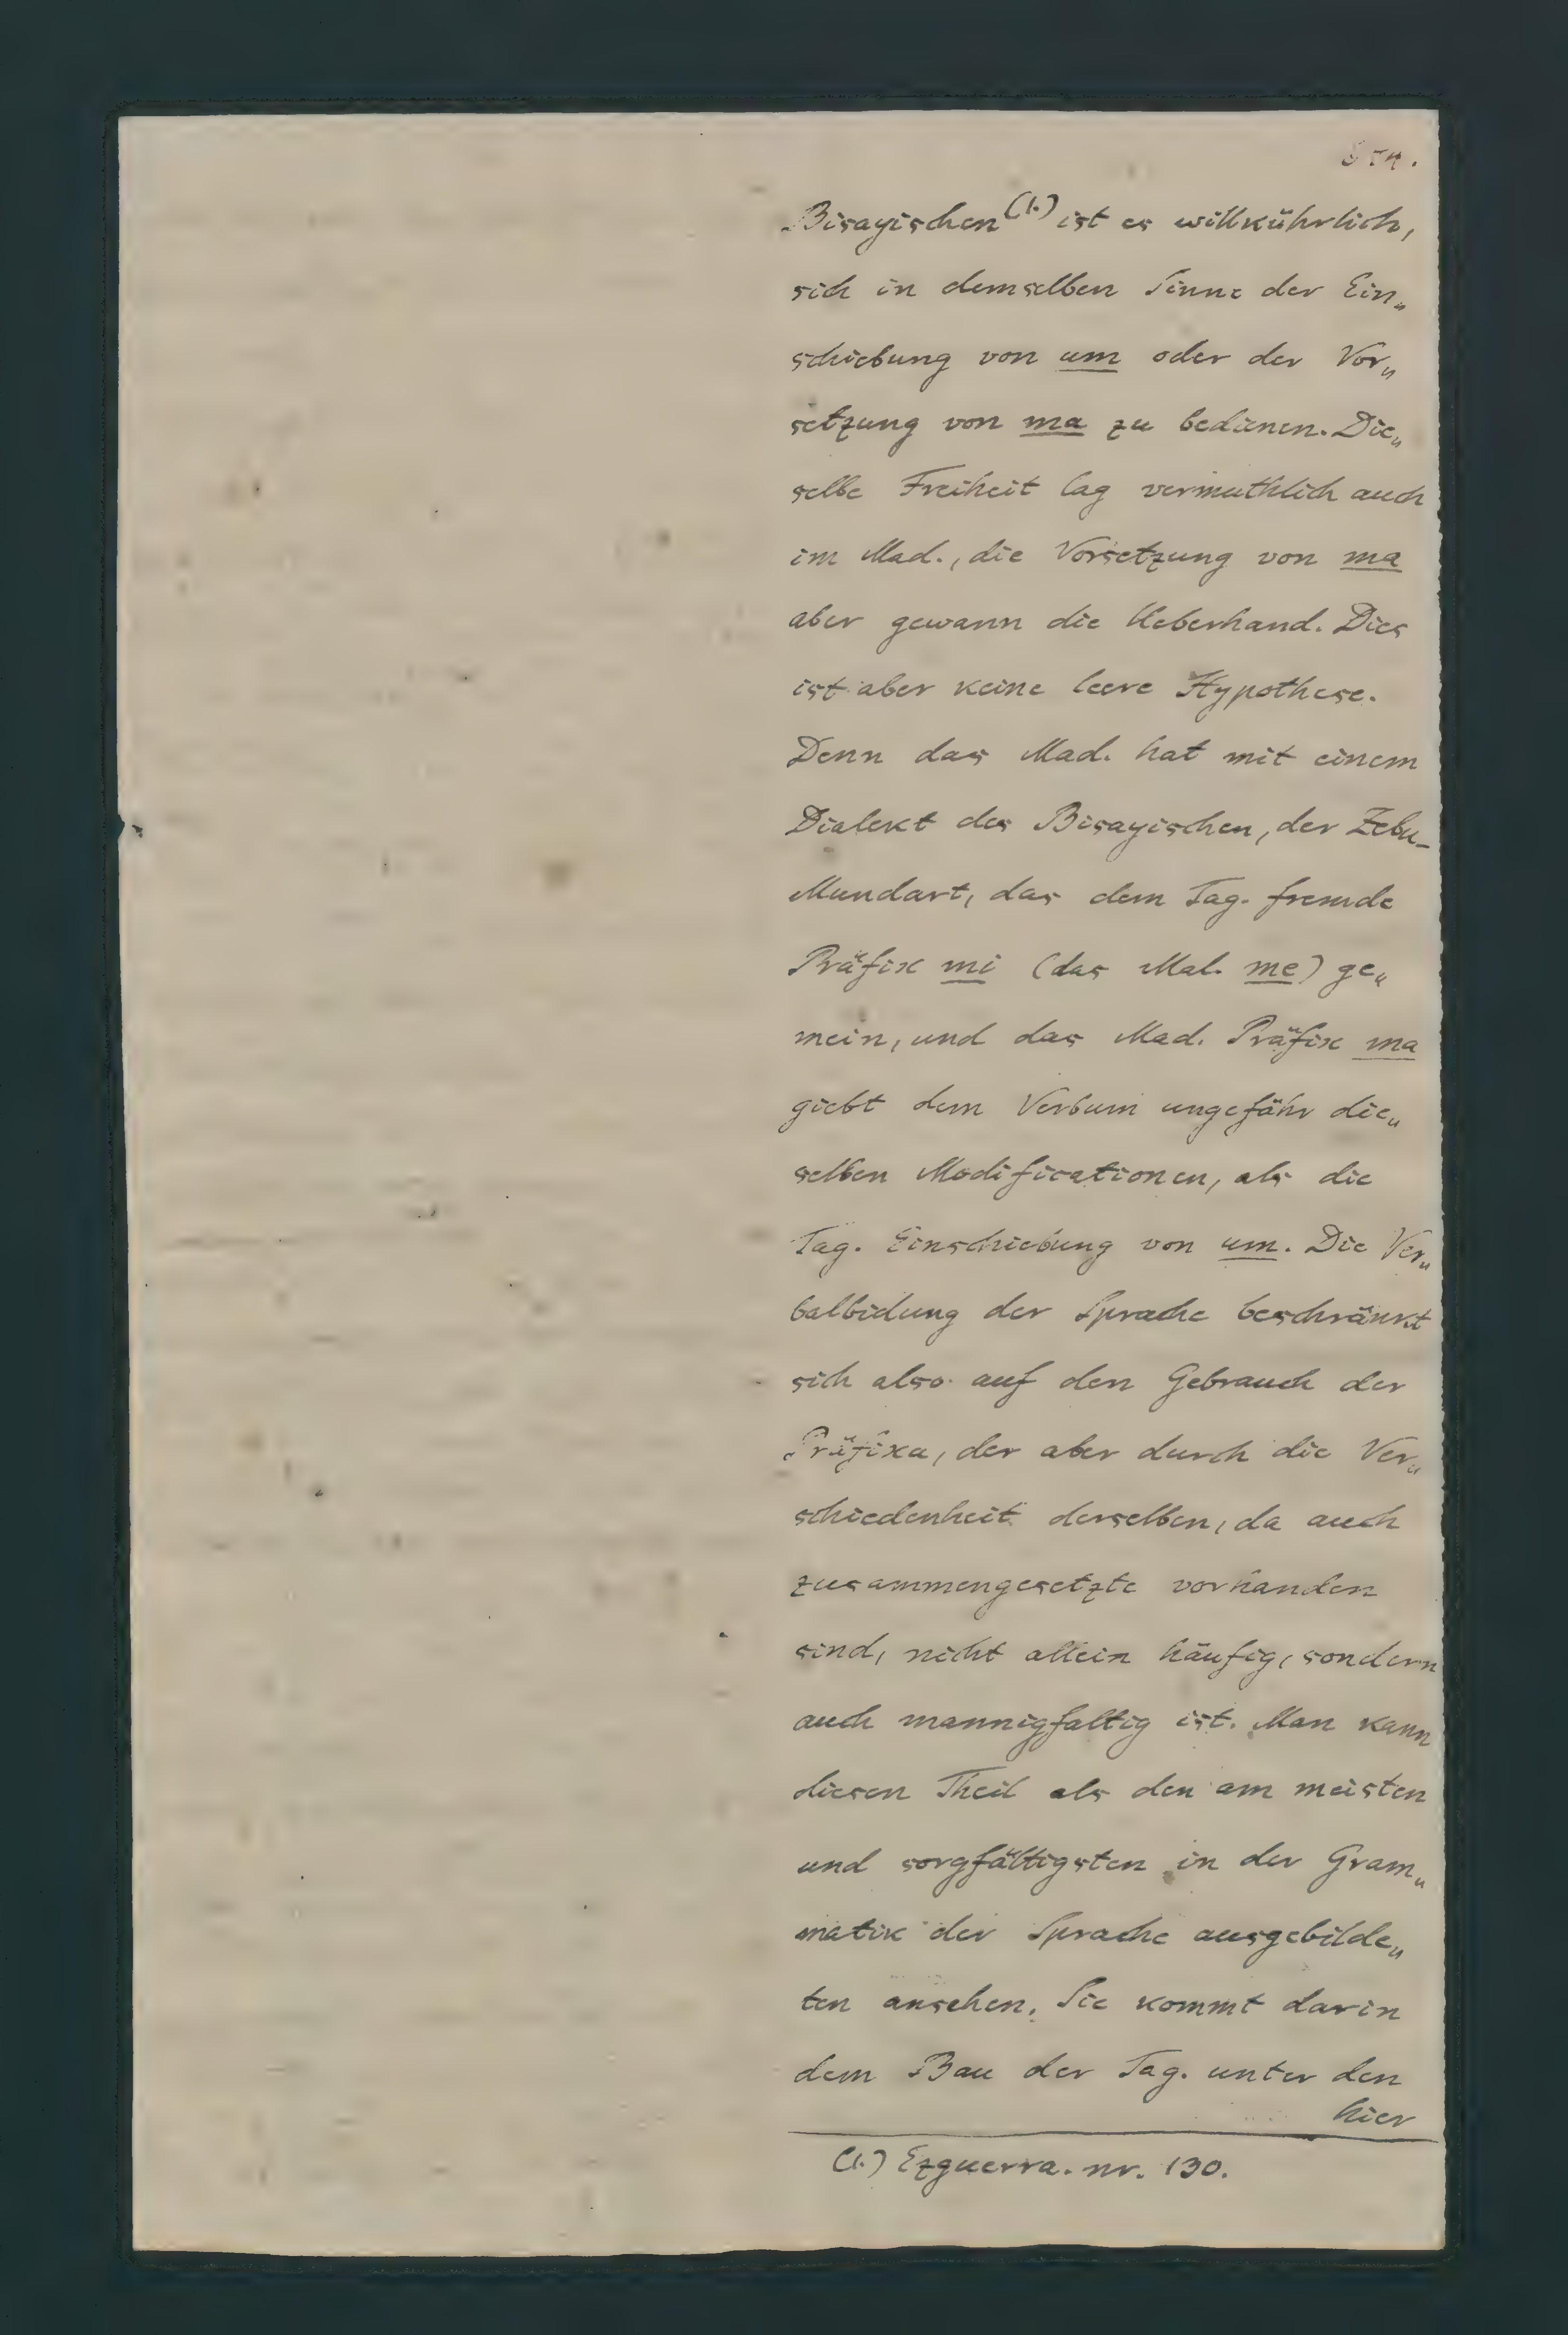 Bisayischen(1.) ist es willkührlich,
sich in demselben Sinne der Ein„
schiebung von um oder der Vor„
setzung von ma zu bedienen. Die„
selbe Freiheit lag vermuthlich auch
im Mad., die Vorsetzung von ma
aber gewann die Ueberhand. Dies
ist aber keine leere Hypothese.
Denn das Mad. hat mit einem
Dialekt des Bisayischen, der Zebu-
Mundart, das dem Tag. fremde
Präfix mi (das Mal. me) ge„
mein, und das Mad. Präfix ma
giebt dem Verbum ungefähr die„
selben Modificationen, als die
Tag. Einschiebung von um. Die Ver„
balbidung der Sprache beschränkt
sich also auf den Gebrauch der
Präfixa, der aber durch die Ver„
schiedenheit derselben, da auch
zusammengesetzte vorhanden
sind, nicht allein häufig, sondern
auch mannigfaltig ist. Man kann
diesen Theil als den am meisten
und sorgfältigsten in der Gram„
matik der Sprache ausgebilde„
ten ansehen. Sie kommt darin
dem Bau der Tag. unter den
hier
(1.) Ezguerra. nr. 130.